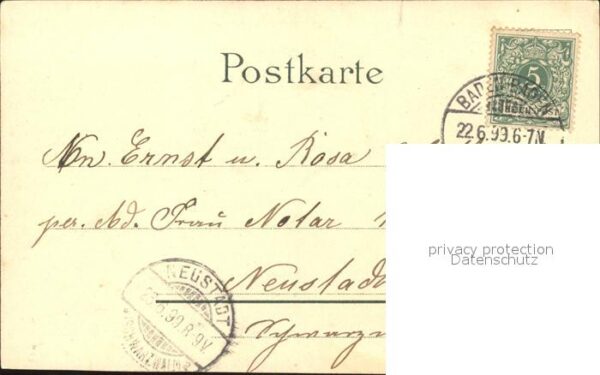 Postkarte
5
BADEN-BADEN
22.6.99.6-7.N.
An Ernst u. Rosa
per. Ad. Frau Notar
Neustadt
Schwarz
NEUSTADT
23.6.99.8-9V.
(SCHWARZWALD)
privacy protection
Datenschutz